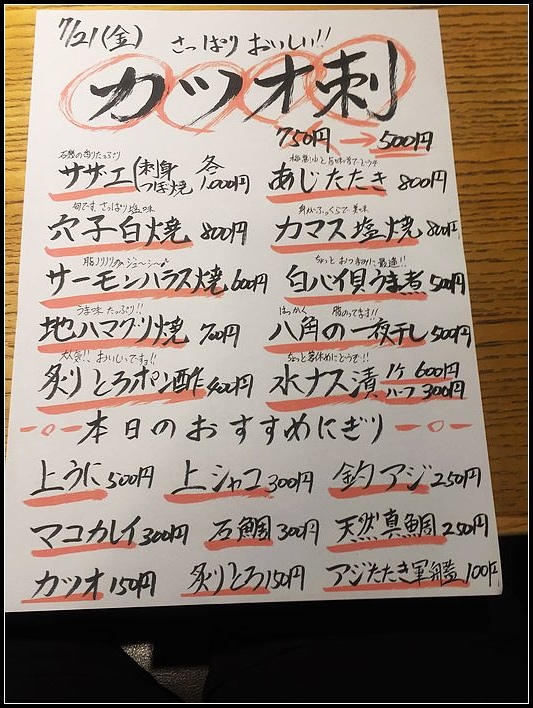 7/21(金)
さっぱりおいしい!!
カツオ刺
750円→500円
磯の香りたっぷり
サザエ(刺身 つぼ焼 各1,000円
あじたたき 800円
旬です、さっぱり塩味
穴子白焼 800円
身がふっくらで美味
カマス塩焼 800円
脂ノリノリのジューシー
サーモンハラス焼 600円
ちょっとおつまみに最適!!
白バイ貝うま煮 500円
うま味たっぷり!!
地ハマグリ焼 700円
はっかく 脂のってます!!
八角の一夜干し 500円
人気!!おいしいですよ!!
炙りとろポン酢 400円
ちょっと箸休めにどうぞ!!
水ナス漬 1ケ 600円
ハーフ 300円
本日のおすすめにぎり
上うに 500円 上シャコ 300円 釣アジ 250円
マコカレイ 300円 石鯛 300円 天然真鯛 250円
カツオ 150円 炙りとろ 150円 アジたたき軍艦 100円